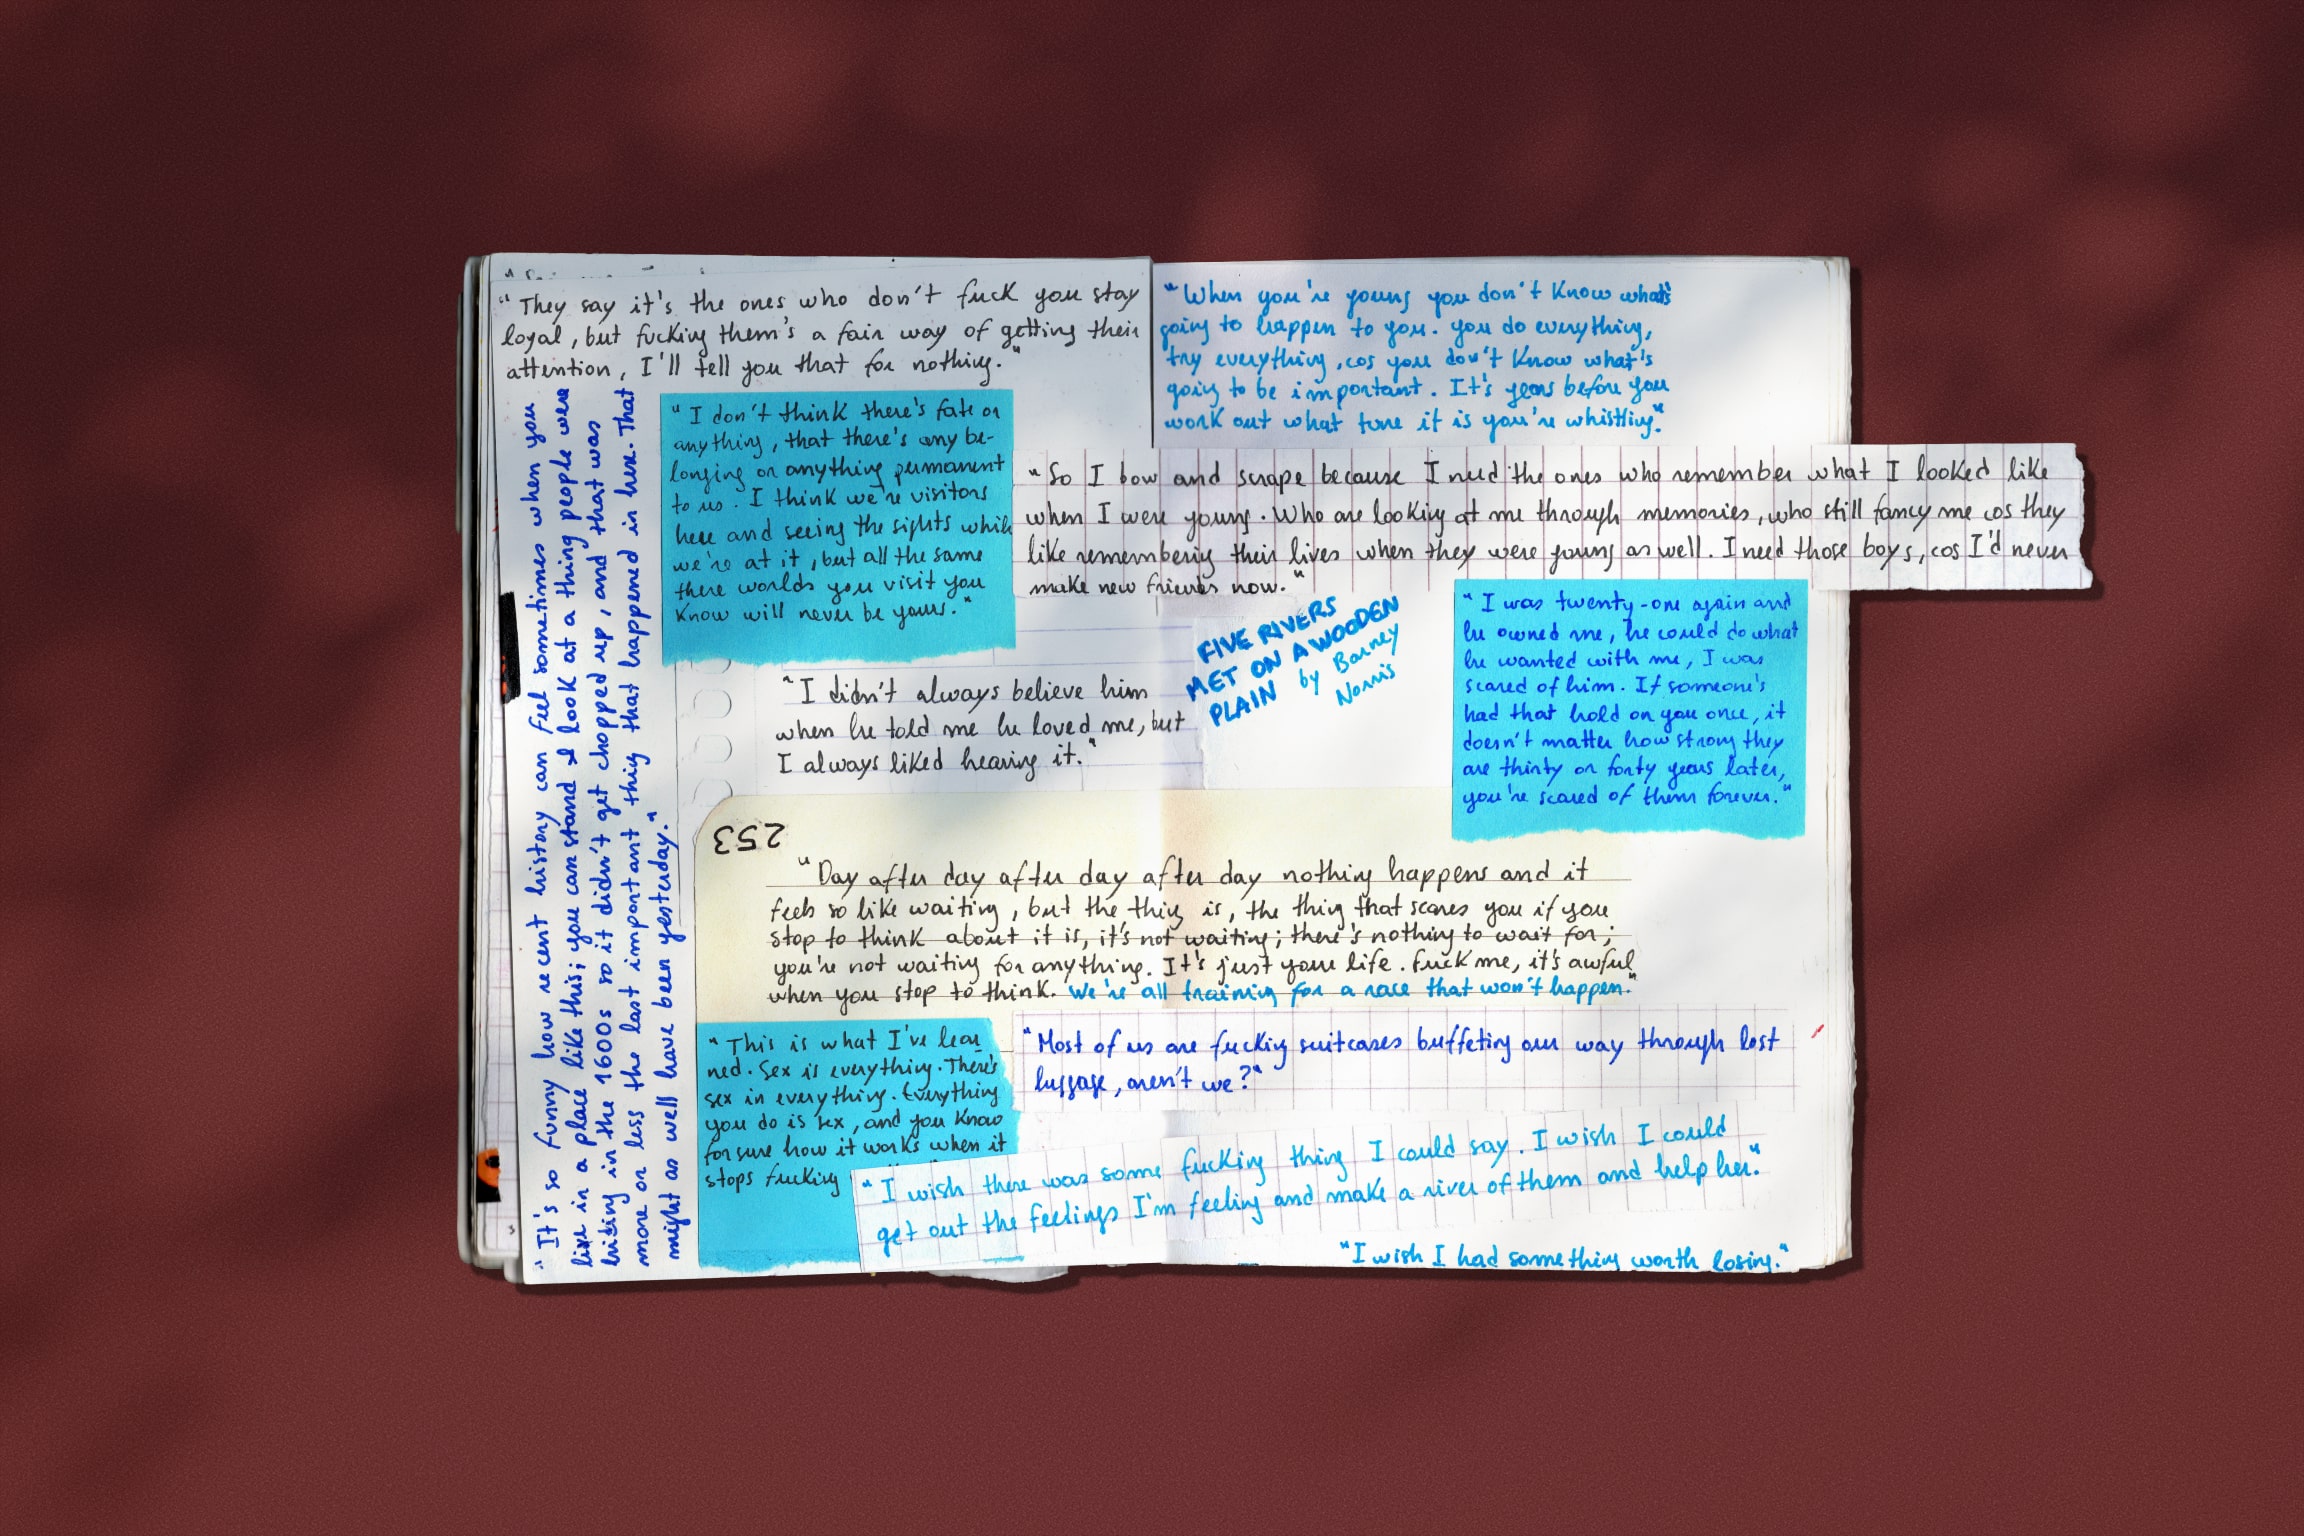 "They say it's the ones who don't fuck you stay
loyal, but fucking them's a fair way of getting their
attention, I'll tell you that for nothing."
"It's so funny how recent history can feel sometimes when you
live in a place like this; you can stand & look at a thing people were
hiting in the 1600s so it didn't get chopped up, and that was
more or less the last important thing that happened in here. That
might as well have been yesterday."
"I don't think there's fate or
anything, that there's any be-
longing or anything permanent
to us. I think we're visitors
here and seeing the sights while
we're at it, but all the same
there worlds you visit you
know will never be yours."
"When you're young you don't know what's
going to happen to you. you do everything,
try everything, cos you don't know what's
going to be important. It's years before you
work out what tune it is you're whistling."
"So I bow and scrape because I need the ones who remember what I looked like
when I were young. Who are looking at me through memories, who still fancy me cos they
like remembering their lives when they were young as well. I need those boys, cos I'd never
make new friends now."
FIVE RIVERS
MET ON A WOODEN
PLAIN by Barney
Norris
"I was twenty-one again and
he owned me, he could do what
he wanted with me, I was
scared of him. If someone's
had that hold on you once, it
doesn't matter how strong they
are thirty or forty years later,
you're scared of them forever."
"I didn't always believe him
when he told me he loved me, but
I always liked hearing it."
253
"Day after day after day after day nothing happens and it
feels so like waiting, but the thing is, the thing that scares you if you
stop to think about it is, it's not waiting; there's nothing to wait for;
you're not waiting for anything. It's just your life. Fuck me, it's awful
when you stop to think. We're all training for a race that won't happen."
"This is what I've lear
ned. Sex is everything. There's
sex in everything. Everything
you do is sex, and you know
for sure how it works when it
stops fucking
"Most of us are fucking suitcases buffeting our way through lost
luggage, aren't we?"
"I wish there was some fucking thing I could say. I wish I could
get out the feelings I'm feeling and make a river of them and help her."
"I wish I had something worth losing."